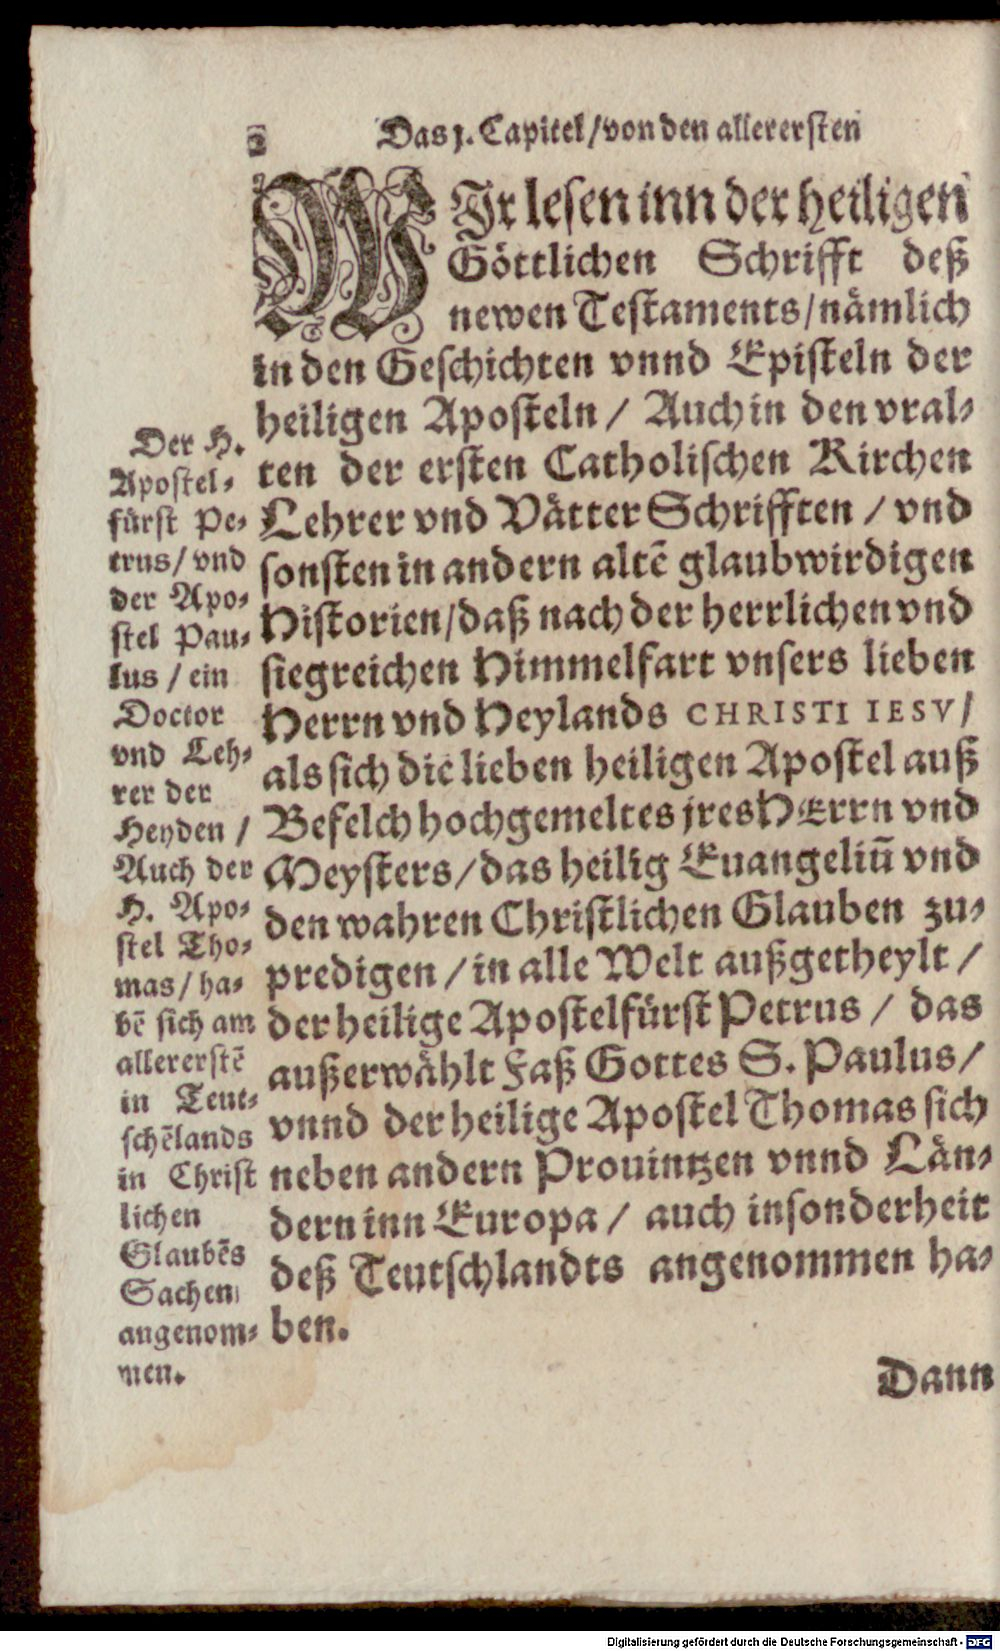 2
Das j. Capitel/von den allerersten
WJr lesen inn der heiligen
Göttlichen Schrifft deß
newen Testaments/nämlich
in den Geschichten vnnd Episteln der
heiligen Aposteln / Auch in den vral-
ten der ersten Catholischen Kirchen
Lehrer vnd Vätter Schrifften / vnd
sonsten in andern altē glaubwirdigen
Historien/daß nach der herrlichen vnd
siegreichen Himmelfart vnsers lieben
Herrn vnd Heylands CHRISTI IESV/
als sich die lieben heiligen Apostel auß
Befelch hochgemeltes jres HErrn vnd
Meysters/das heilig Euangeliū vnd
den wahren Christlichen Glauben zu-
predigen/in alle Welt außgetheylt /
der heilige Apostelfürst Petrus / das
außerwählt Faß Gottes S. Paulus/
vnnd der heilige Apostel Thomas sich
neben andern Prouintzen vnnd Län-
dern inn Europa / auch insonderheit
deß Teutschlandts angenommen ha-
ben.
Der H.
Apostel-
fürst Pe-
trus/vnd
der Apo-
stel Pau-
lus / ein
Doctor
vnd Leh-
rer der
Heyden /
Auch der
H. Apo-
stel Tho-
mas/ha-
bē sich am
allererstē
in Teut-
schēlands
in Christ
lichen
Glaubēs
Sachen
angenom-
men.
Dann
Digitalisierung gefördert durch die Deutsche Forschungsgemeinschaft - DFG